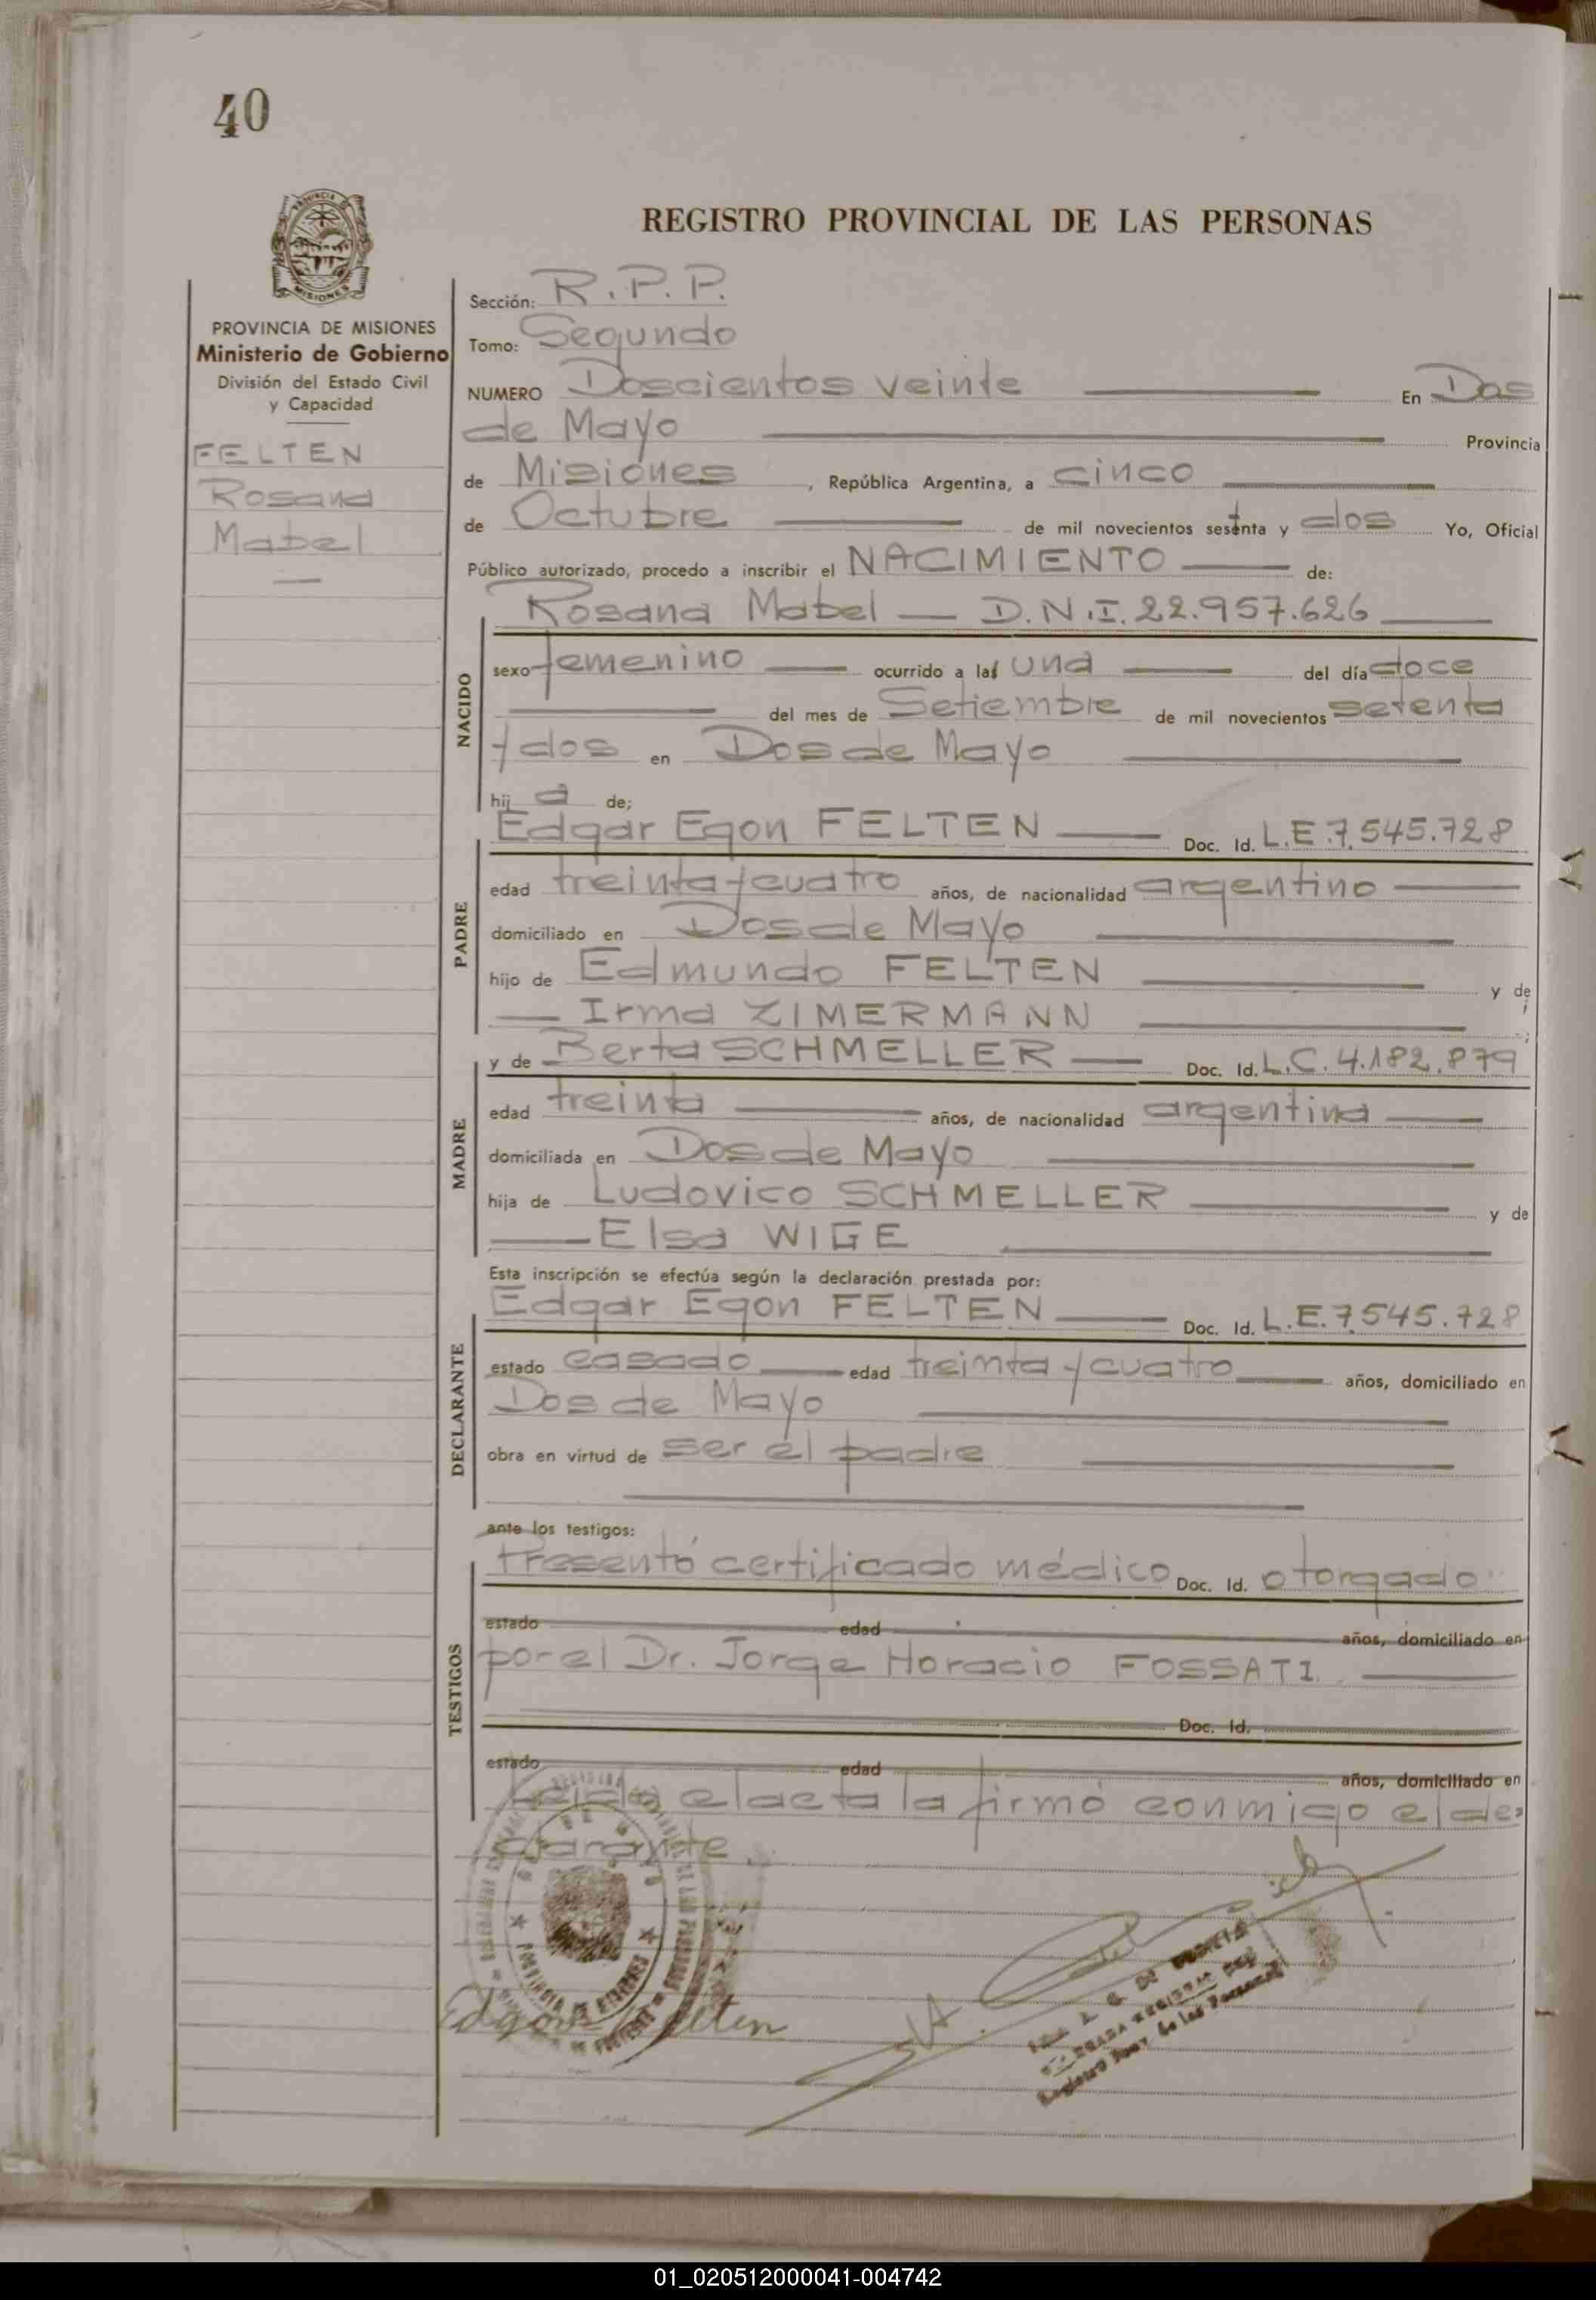 40
REGISTRO PROVINCIAL DE LAS PERSONAS
PROVINCIA DE MISIONES
Ministerio de Gobierno
División del Estado Civil
y Capacidad
FELTEN
Rosana
Mabel
Sección: R.P.P.
Tomo: Segundo
NUMERO Doscientos veinte En Dos
de Mayo Provincia
de Misiones, República Argentina, a cinco
de Octubre de mil novecientos sesenta y dos Yo, Oficial
Público autorizado, procedo a inscribir el NACIMIENTO de:
Rosana Mabel — D.N.I. 22.957.626
NACIDO
sexo femenino ocurrido a las una del día doce
del mes de Setiembre de mil novecientos setenta
y dos en Dos de Mayo
hij a de;
Edgar Egon FELTEN Doc. Id. L.E.7.545.728
PADRE
edad treinta y cuatro años, de nacionalidad argentino
domiciliado en Dos de Mayo
hijo de Edmundo FELTEN y de
Irma ZIMERMANN
y de Berta SCHMELLER Doc. Id. L.C. 4.182.879
MADRE
edad treinta años, de nacionalidad argentina
domiciliada en Dos de Mayo
hija de Ludovico SCHMELLER y de
Elsa WIGE
Esta inscripción se efectúa según la declaración prestada por:
Edgar Egon FELTEN Doc. Id. L.E.7.545.728
DECLARANTE
estado casado edad treinta y cuatro años, domiciliado en
Dos de Mayo
obra en virtud de ser el padre
ante los testigos:
Presentó certificado médico Doc. Id. otorgado
TESTIGOS
estado edad años, domiciliado en
por el Dr. Jorge Horacio FOSSATI.
Doc. Id.
estado edad años, domiciliado en
Leida el acta la firmó conmigo el de=
clarante.
Edgar Felten
01_020512000041-004742